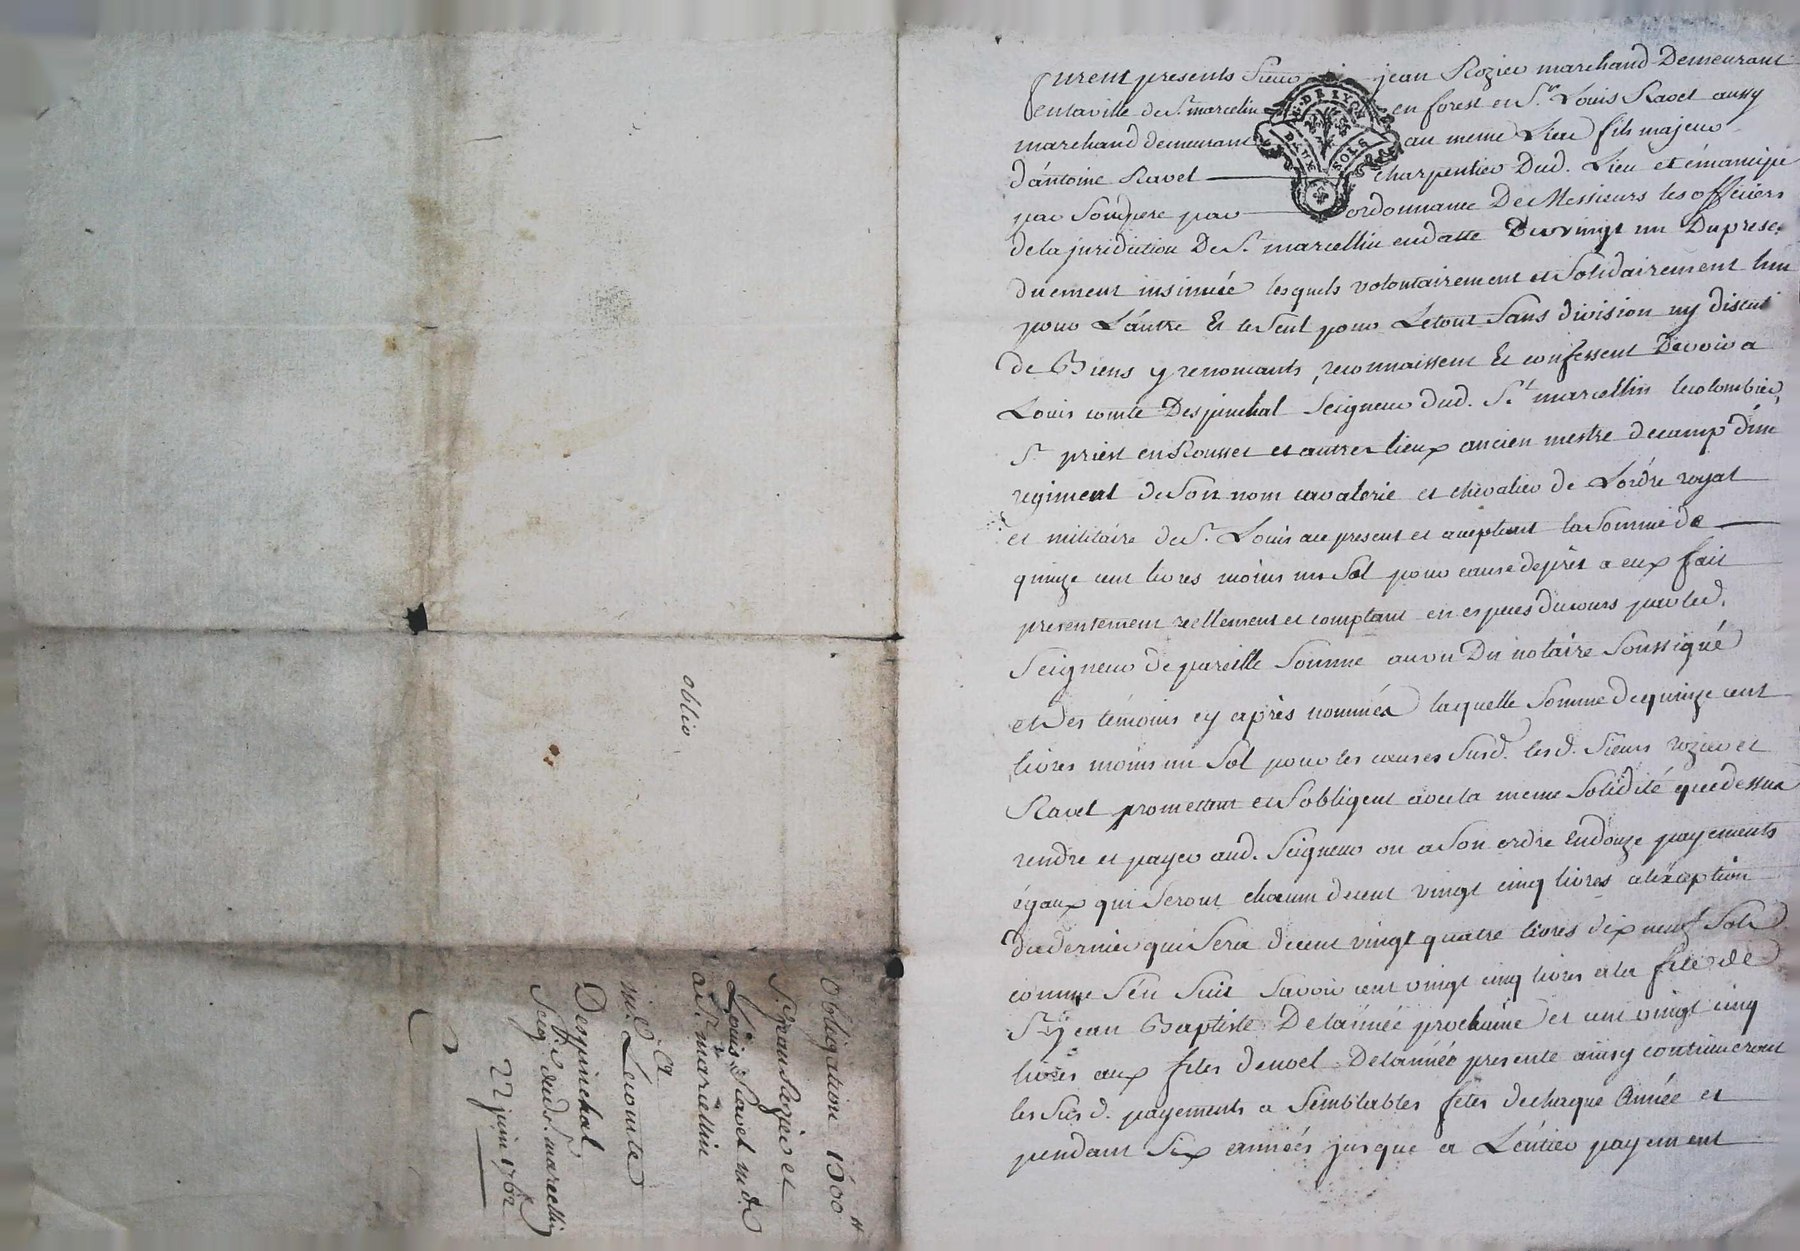 furent presents Sieur jean Rozier marchand Demeurant
en la ville de St marcelin en forest et Sr Louis Ravel aussy
marchand demeurant au meme Lieu fils majeur
d'antoine Ravel charpentier Dud. Lieu et émancipé
par Son pere par ordonnance De Messieurs les officiers
de la juridiction De St marcellin en datte Du vingt un Du prese
duement insinuée lesquels volontairement et Solidairement lun
pour L'autre Et le Seul pour Le tout Sans division ny discu
de Biens y renoncants, reconnaissent Et confessent Devoir a
Louis comte Despinchal Seigneur dud. St marcellin le colombier,
St priest en Rousset et autres lieux ancien mestre de camp d'un
regiment de Son nom cavalerie et chevalier de L'ordre royal
et militaire de St Louis ace present et aceptant la Somme de
quinze cent livres moins un Sol pour cause de prêt a eux fait
presentement réellement et comptant en especes du cours par led.
Seigneur de pareille Somme au vu Du notaire Soussigné
et Des témoins cy après nommés laquelle Somme de quinze cent
livres moins un Sol pour les causes Susd. lesd. Sieurs rozier et
Ravel promettent et S'obligent avec la meme Solidité que dessus
rendre et payer aud. Seigneur ou a Son ordre En douze payements
égaux qui Seront chacun de cent vingt cinq livres a l'exception
du dernier qui Sera de cent vingt quatre livres dix neuf Sols
comme S'en Suit Savoir cent vingt cinq livres a la fete de
St jean Baptiste De l'année prochaine et cent vingt cinq
livres aux fetes de noel De l'année presente ainsy continueront
les Susd. payements a Semblables fetes de chaque Année et
pendant Six années jusque a L'entier payement
DE LYON
DEUX SOLS
oblio
Obligation 1500 tt
Sr jean Rozier et
Louis Ravel mds
a St marcellin
Mr. Le comte
Despinchal
Seigr dud St marcellin
22 juin 1762